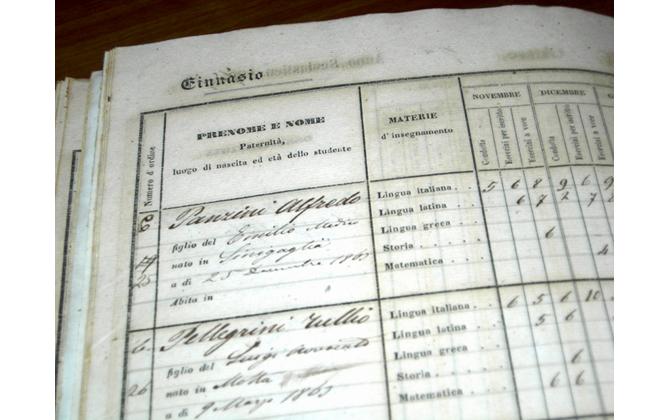 Ginnasio
Anno Scolastico
Numero d'ordine
PRENOME E NOME
Paternità,
luogo di nascita ed età dello studente
MATERIE
d'insegnamento
NOVEMBRE
DICEMBRE
Condotta
Esercizi per iscritto
Esercizi a voce
Condotta
Esercizi per iscritto
Esercizi a voce
Panzini Alfredo
figlio del Emilio Medico
nato in Sinigaglia
a dì 25 Dicembre 1863
Abita in
25
Lingua italiana . . . 5 6 8 9 6 9
Lingua latina . . . 6 7 2 7 8
Lingua greca . . . 6
Storia . . .
Matematica . . . 4
Pellegrini Tullio
figlio del Luigi
nato in Motta
a dì 9 Marzo 1863
26
Lingua italiana . . . 6 5 6 10
Lingua latina . . . 5 6
Lingua greca . . .
Storia . . . 6
Matematica . . . 6 6